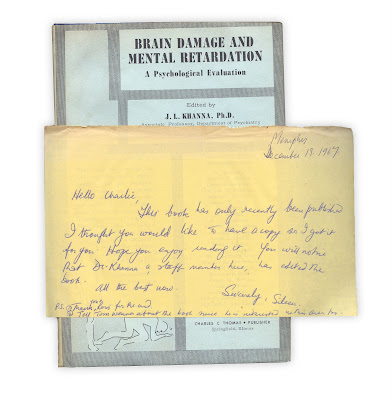 BRAIN DAMAGE AND
MENTAL RETARDATION
A Psychological Evaluation
Edited by
J. L. KHANNA, Ph.D.
Associate Professor, Department of Psychiatry
Memphis
December 13, 1967
Hello Charlie,
This book has only recently been published
I thought you would like to have a copy so I got it
for you. Hope you enjoy reading it. You will notice
that Dr. Khanna a staff member here, has edited the
book.
All the best now.
Sincerely,
P.S. Thank you for the card
Tell Tom about the book since he is interested
CHARLES C THOMAS • PUBLISHER
Springfield, Illinois